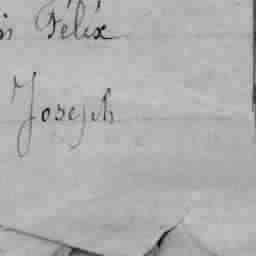 Félix
Joseph